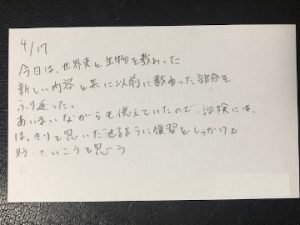 4/17
今日は、世界史と生物を教わった
新しい内容と共に以前に教わった部分を
ふり返った。
あいまいながらも覚えていたので、試験には、
はっきりと思いだせるように復習をしっかりと
していこうと思う